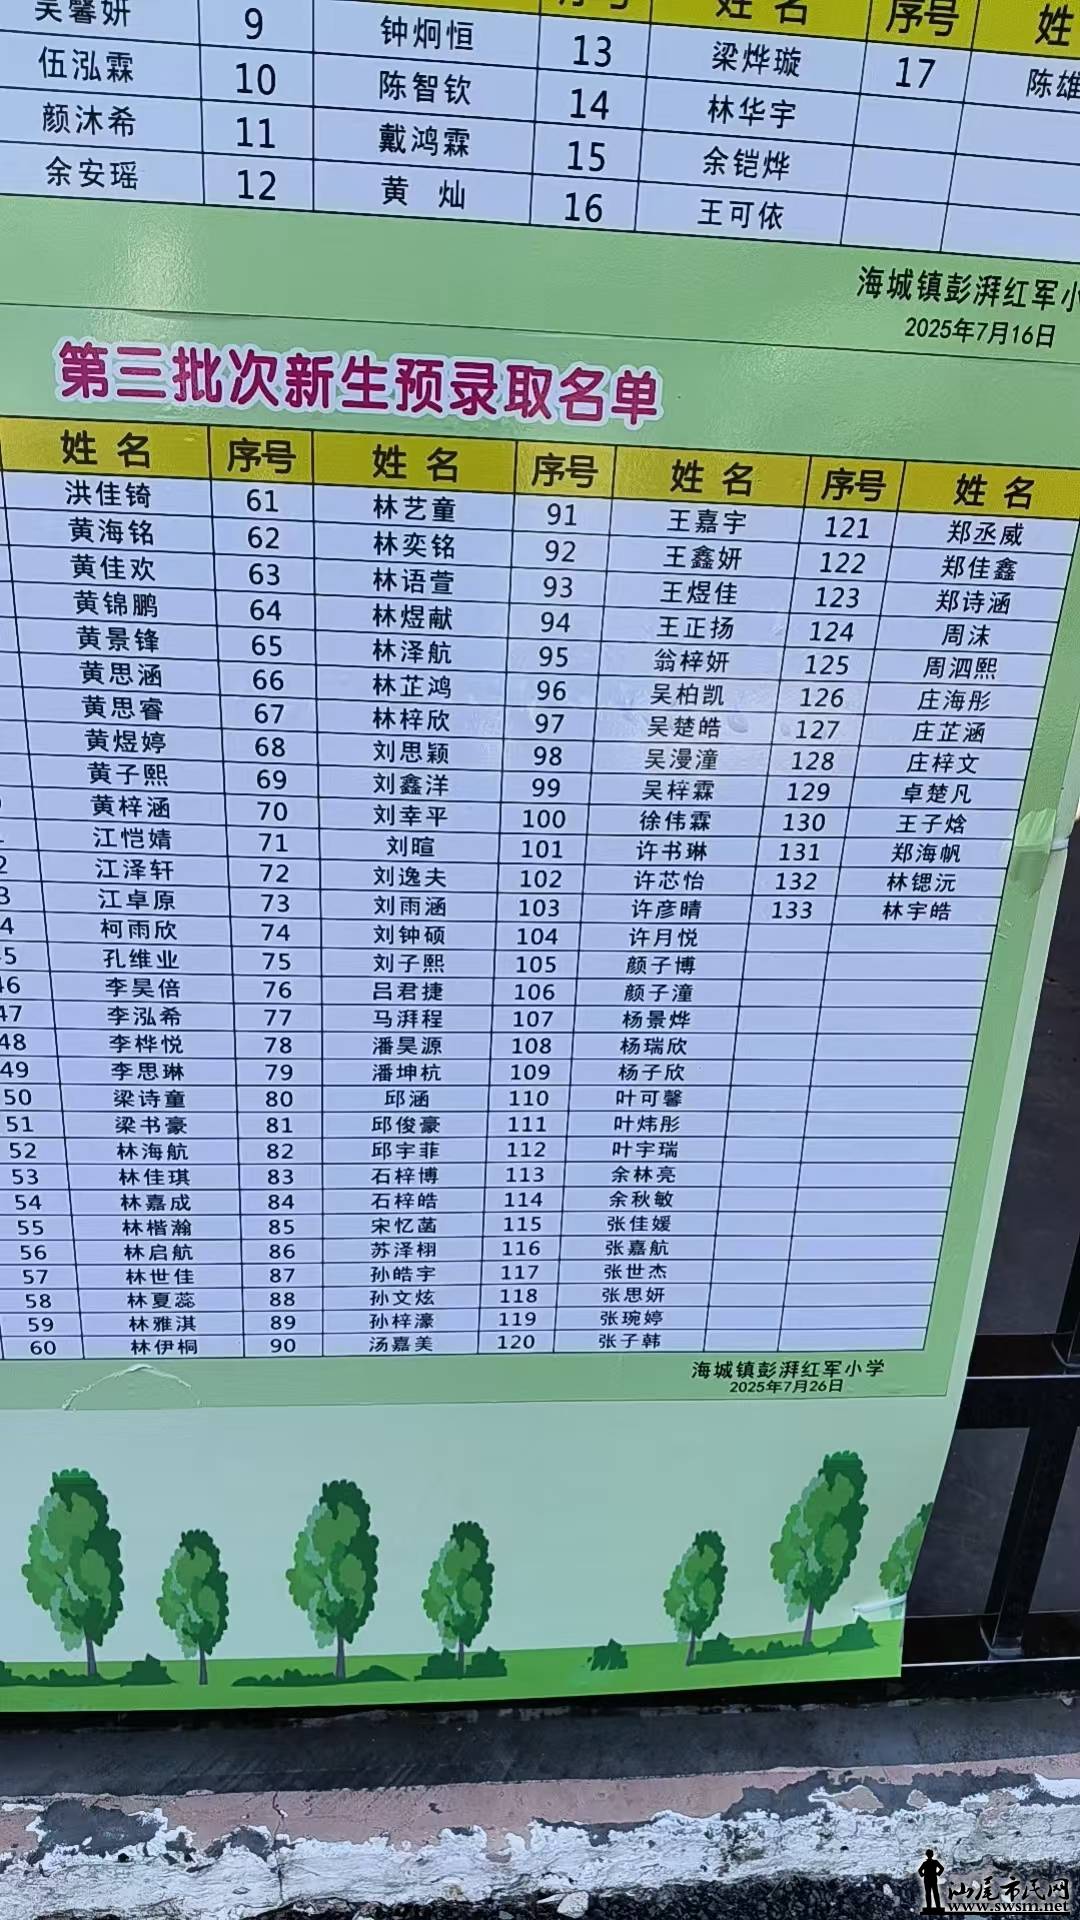 吴馨妍 9 钟炯恒 13 梁烨璇 17 陈雄
伍泓霖 10 陈智钦 14 林华宇
颜沐希 11 戴鸿霖 15 余铠烨
余安瑶 12 黄 灿 16 王可依
序号 姓 名 序号 姓
海城镇彭湃红军小
2025年7月16日
第三批次新生预录取名单
姓 名 序号 姓 名 序号 姓 名 序号 姓 名
洪佳锜 61 林艺童 91 王嘉宇 121 郑丞威
黄海铭 62 林奕铭 92 王鑫妍 122 郑佳鑫
黄佳欢 63 林语萱 93 王煜佳 123 郑诗涵
黄锦鹏 64 林煜献 94 王正扬 124 周沫
黄景锋 65 林泽航 95 翁梓妍 125 周泗熙
黄思涵 66 林芷鸿 96 吴柏凯 126 庄海彤
黄思睿 67 林梓欣 97 吴楚皓 127 庄芷涵
黄煜婷 68 刘思颖 98 吴漫潼 128 庄梓文
黄子熙 69 刘鑫洋 99 吴梓霖 129 卓楚凡
黄梓涵 70 刘幸平 100 徐伟霖 130 王子焓
江恺婧 71 刘暄 101 许书琳 131 郑海帆
2 江泽轩 72 刘逸夫 102 许芯怡 132 林锶沅
3 江卓原 73 刘雨涵 103 许彦晴 133 林宇皓
4 柯雨欣 74 刘钟硕 104 许月悦
45 孔维业 75 刘子熙 105 颜子博
46 李昊倍 76 吕君捷 106 颜子潼
47 李泓希 77 马湃程 107 杨景烨
48 李桦悦 78 潘昊源 108 杨瑞欣
49 李思琳 79 潘坤杭 109 杨子欣
50 梁诗童 80 邱涵 110 叶可馨
51 梁书豪 81 邱俊豪 111 叶炜彤
52 林海航 82 邱宇菲 112 叶宇瑞
53 林佳琪 83 石梓博 113 余林亮
54 林嘉成 84 石梓皓 114 余秋敏
55 林楷瀚 85 宋忆菡 115 张佳媛
56 林启航 86 苏泽栩 116 张嘉航
57 林世佳 87 孙皓宇 117 张世杰
58 林夏蕊 88 孙文炫 118 张思妍
59 林雅淇 89 孙梓濠 119 张琬婷
60 林伊桐 90 汤嘉美 120 张子韩
海城镇彭湃红军小学
2025年7月26日
汕尾市民网
www.swsm.net